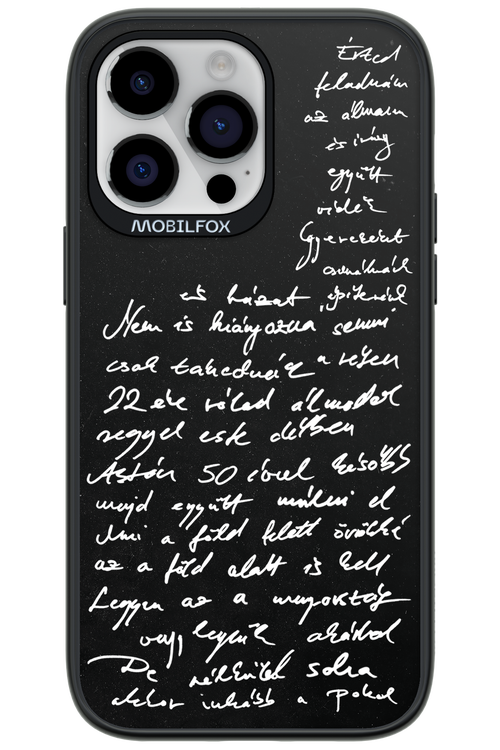 MOBILFOX
Érted
feladnám
az álmaim
és
együtt
Gyerekeket
csinálnánk
és házat építenénk
Nem is hiányozna semmi
csak takednék a
22 éve rólad álmodok
reggel este délben
Aztán 50 évvel később
majd együtt múlni el
Ami a föld felett örökké
az a föld alatt is kell
Legyen az a mennyország
vagy legyünk akárhol
De nélküled soha
akkor inkább a Pokol